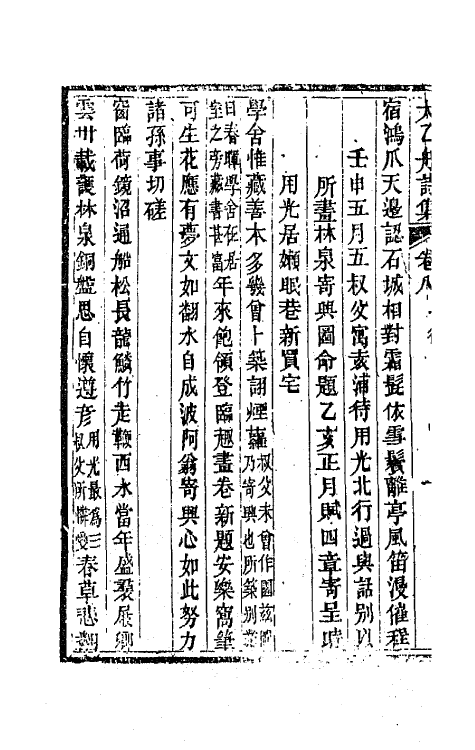 太乙舟詩集 卷八
宿鴻爪天邊認石城相對霜髭依雪鬢離亭風笛漫催程
壬申五月五叔父寓袁浦待用光北行過與話別以
所畫林泉寄興圖命題乙亥正月賦四章寄呈時
用光居嬾眠巷新買宅
學舍惟藏善本多幾曾卜築詡煙蘿叔父未曾作園茲圖乃寄興也所築別業
曰春暉學舍在居室之旁藏書甚富年來飽領登臨趣畫卷新題安樂窩筆
可生花應有夢文如翻水自成波阿翁寄興心如此努力
諸孫事切磋
窗臨荷鏡沼通船松長龍鱗竹走鞭西水當年盛裠屐卿
雲卅載護林泉銅盤思自懷遵彦用光最爲三叔父所憐愛春草悲